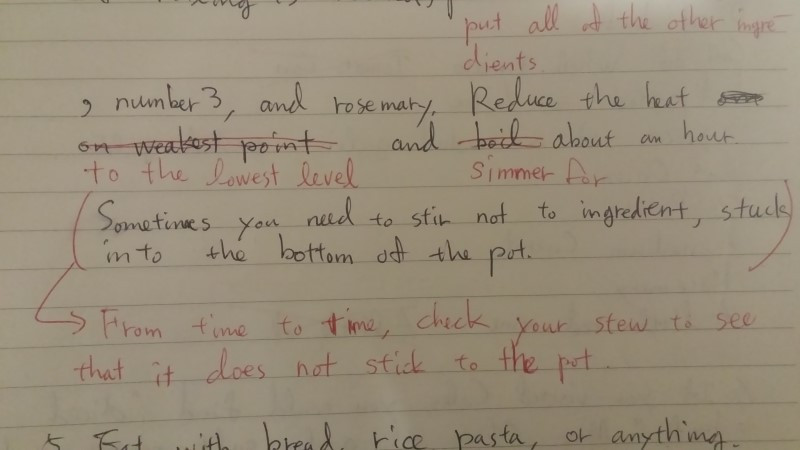 put all of the other ingre-
dients
, number 3, and rosemary. Reduce the heat
on weakest point and boil about an hour.
to the lowest level simmer for
Sometimes you need to stir not to ingredient, stuck
into the bottom of the pot.
From time to time, check your stew to see
that it does not stick to the pot.
5. Eat with bread, rice pasta, or anything.